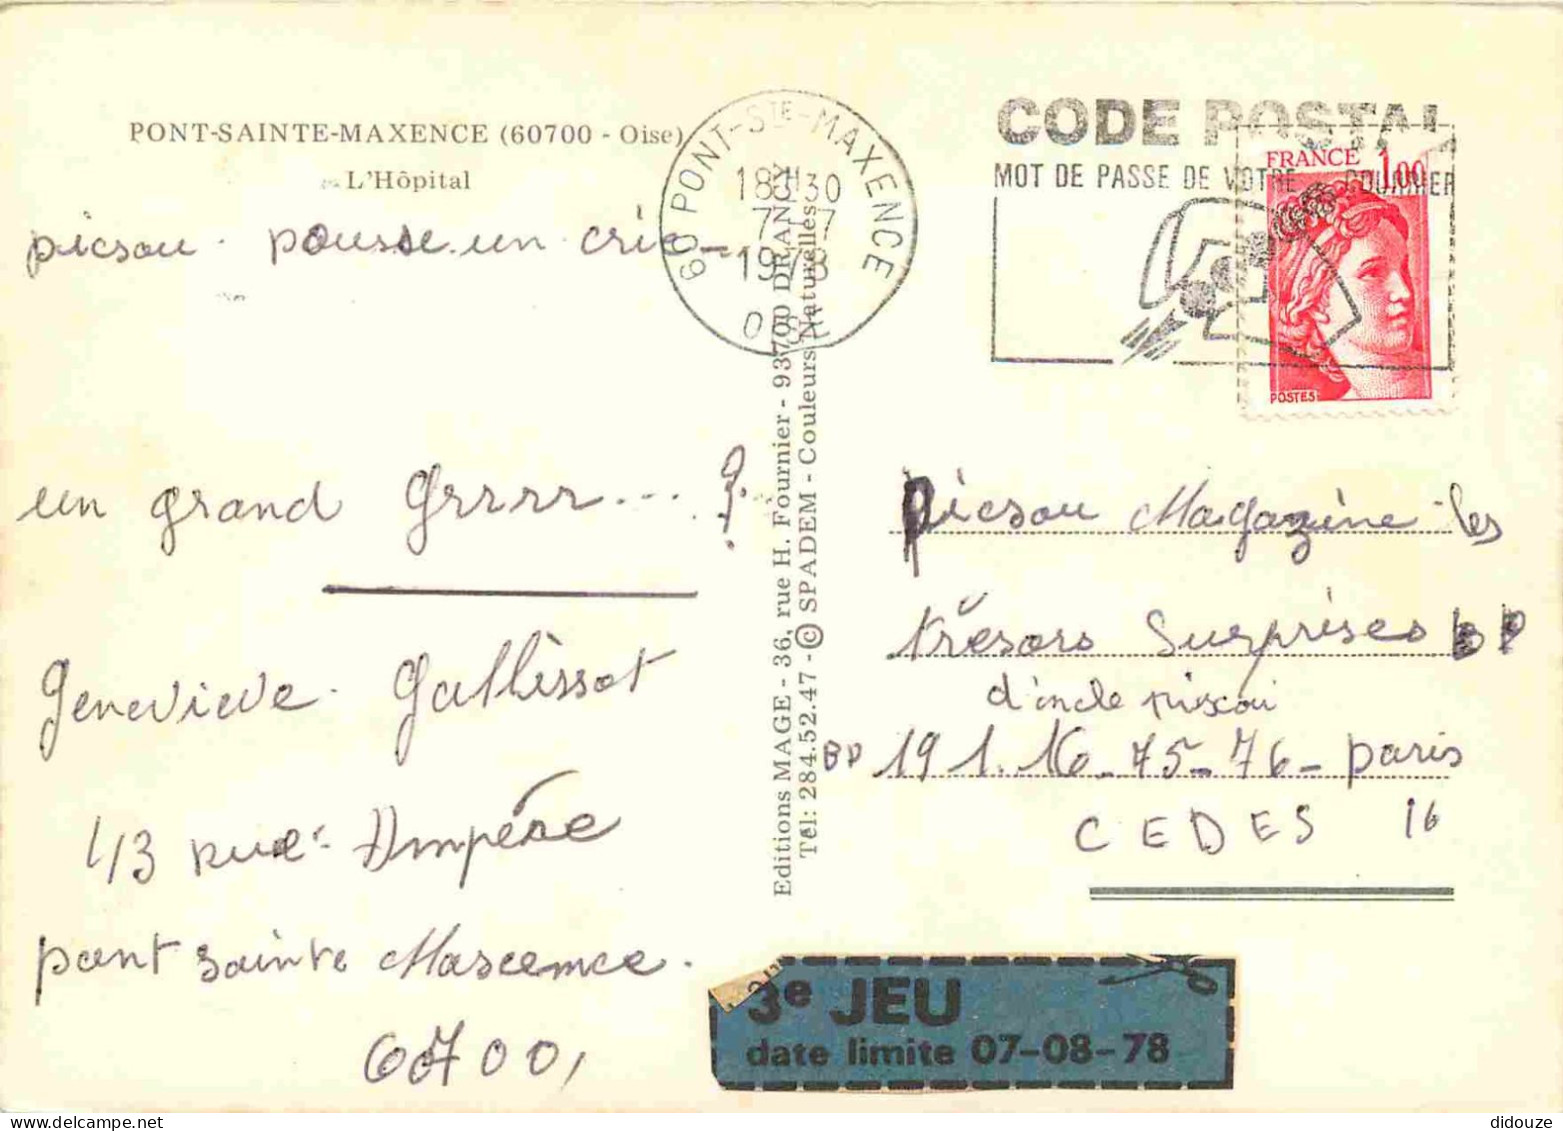 PONT-SAINTE-MAXENCE (60700 - Oise)
L'Hôpital
picsou. pousse un crie
un grand Grrrr.... ?
Genevieve. Gallissot
43 rue Ampére
pont sainte Mascemce.
60700,
60 PONT-STE-MAXENCE
18H30
7-7
1978
OISE
Editions MAGE - 36, rue H. Fournier - 93700 DRANCY
Tél: 284.52.47 - © SPADEM - Couleurs Naturelles
CODE POSTAL
MOT DE PASSE DE VOTRE COURRIER
FRANCE 1.00
POSTES
Picsou Magazine les
trésors Surprises BP
d'oncle piscou
BP 191.16-75-76-paris
CEDES 16
3e JEU
date limite 07-08-78
didouze